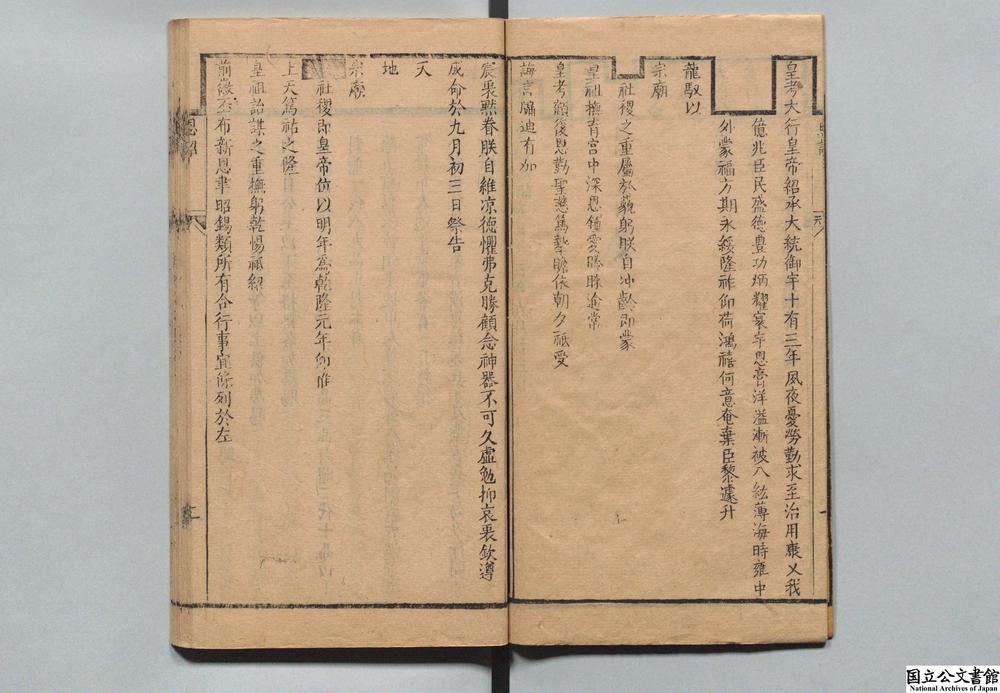 皇考大行皇帝紹承大統御宇十有三年夙夜憂勞勤求至治用康乂我
億兆臣民盛德豊功炳耀寰宇恩膏洋溢漸被八紘薄海時雍中
外蒙福方期永綏隆祚仰荷鴻禧何意奄棄臣黎遽升
龍馭以
宗廟
社稷之重屬於藐躬朕自冲齡即蒙
皇祖撫育宮中深恩鍾愛
皇考顧復恩勤聖慈篤摯瞻依朝夕祗受
誨言牖迪有加
宸衷黙眷朕自維凉德懼弗克勝顧念神器不可久虛勉抑哀衷欽遵
成命於九月初三日祭告
天
地
宗廟
社稷即皇帝位以明年為乾隆元年仰惟
上天篤祜之隆
皇祖詒謀之重撫躬乾惕祗紹
前徽至布新恩聿昭錫類所有合行事宜條列於左
国立公文書館
National Archives of Japan